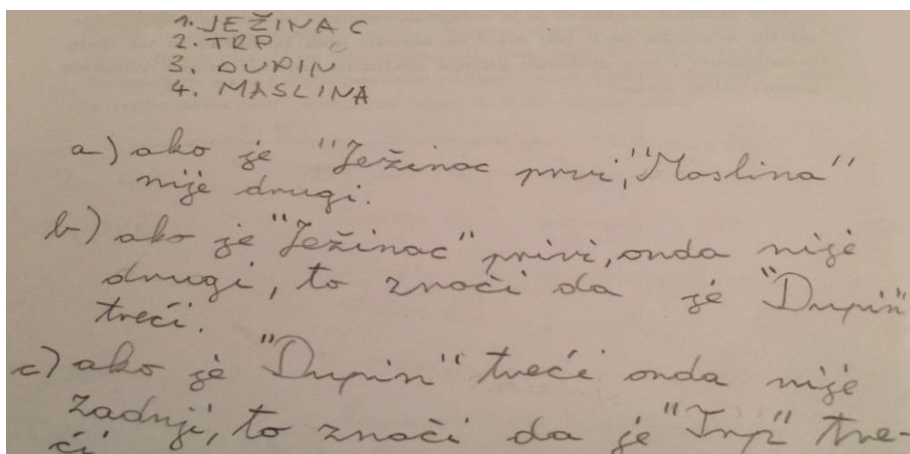 1. JEŽINAC
2. TRP
3. DUPIN
4. MASLINA
a) ako je "Ježinac prvi, "Maslina"
nije drugi.
b) ako je "Ježinac" privi, onda nije
drugi, to znači da je "Dupin"
treći.
c) ako je "Dupin" treći onda nije
zadnji, to znači da je "Trp" tre-
ći